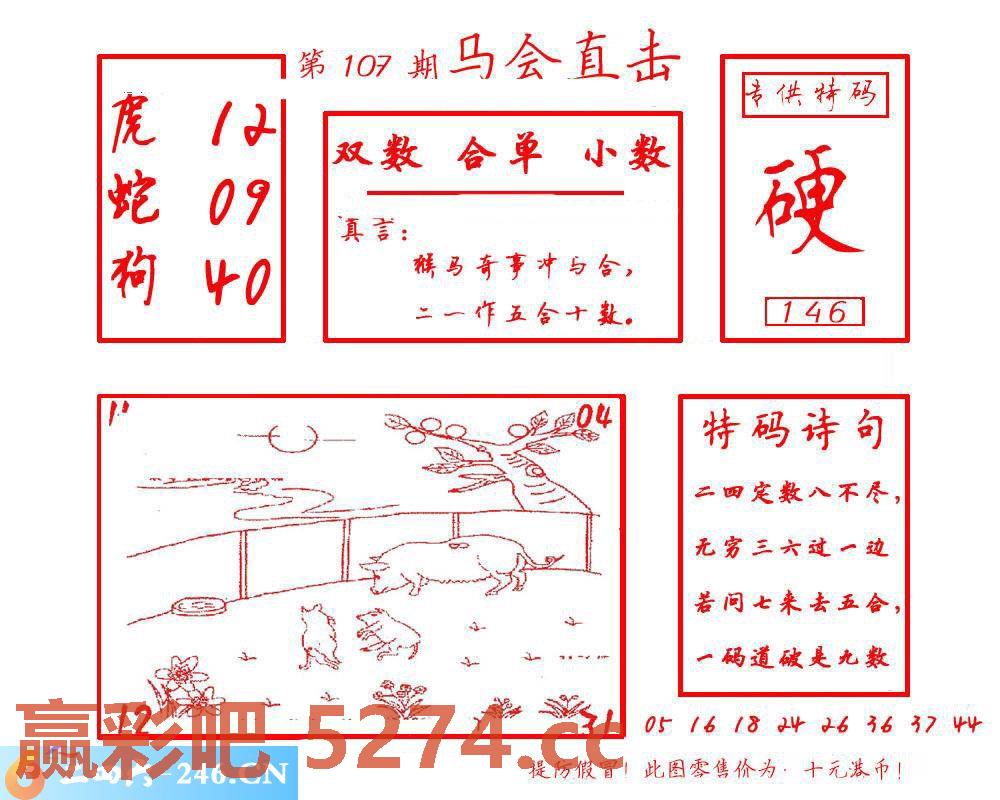 第 107 期 马会直击
虎 12
蛇 09
狗 40
双数 合单 小数
真言:
猴马奇事冲与合,
二一作五合十数。
专供特码
硬
146
11
04
12
31
特码诗句
二四定数八不尽,
无穷三六过一边
若问七来去五合,
一码道破是九数
05 16 18 24 26 36 37 44
赢彩吧 5274.cc
-246.CN
提防假冒! 此图零售价为·十元港币!